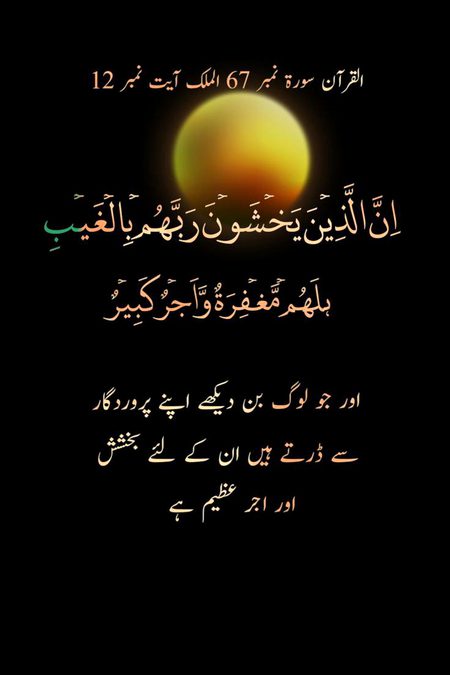 القرآن سورۃ نمبر 67 الملک آیت نمبر 12
اِنَّ الَّذِيۡنَ يَخۡشَوۡنَ رَبَّهُمۡ بِالۡغَيۡبِ
لَهُمۡ مَّغۡفِرَةٌ وَّاَجۡرٌ كَبِيۡرٌ
اور جو لوگ بن دیکھے اپنے پروردگار
سے ڈرتے ہیں ان کے لئے بخشش
اور اجر عظیم ہے